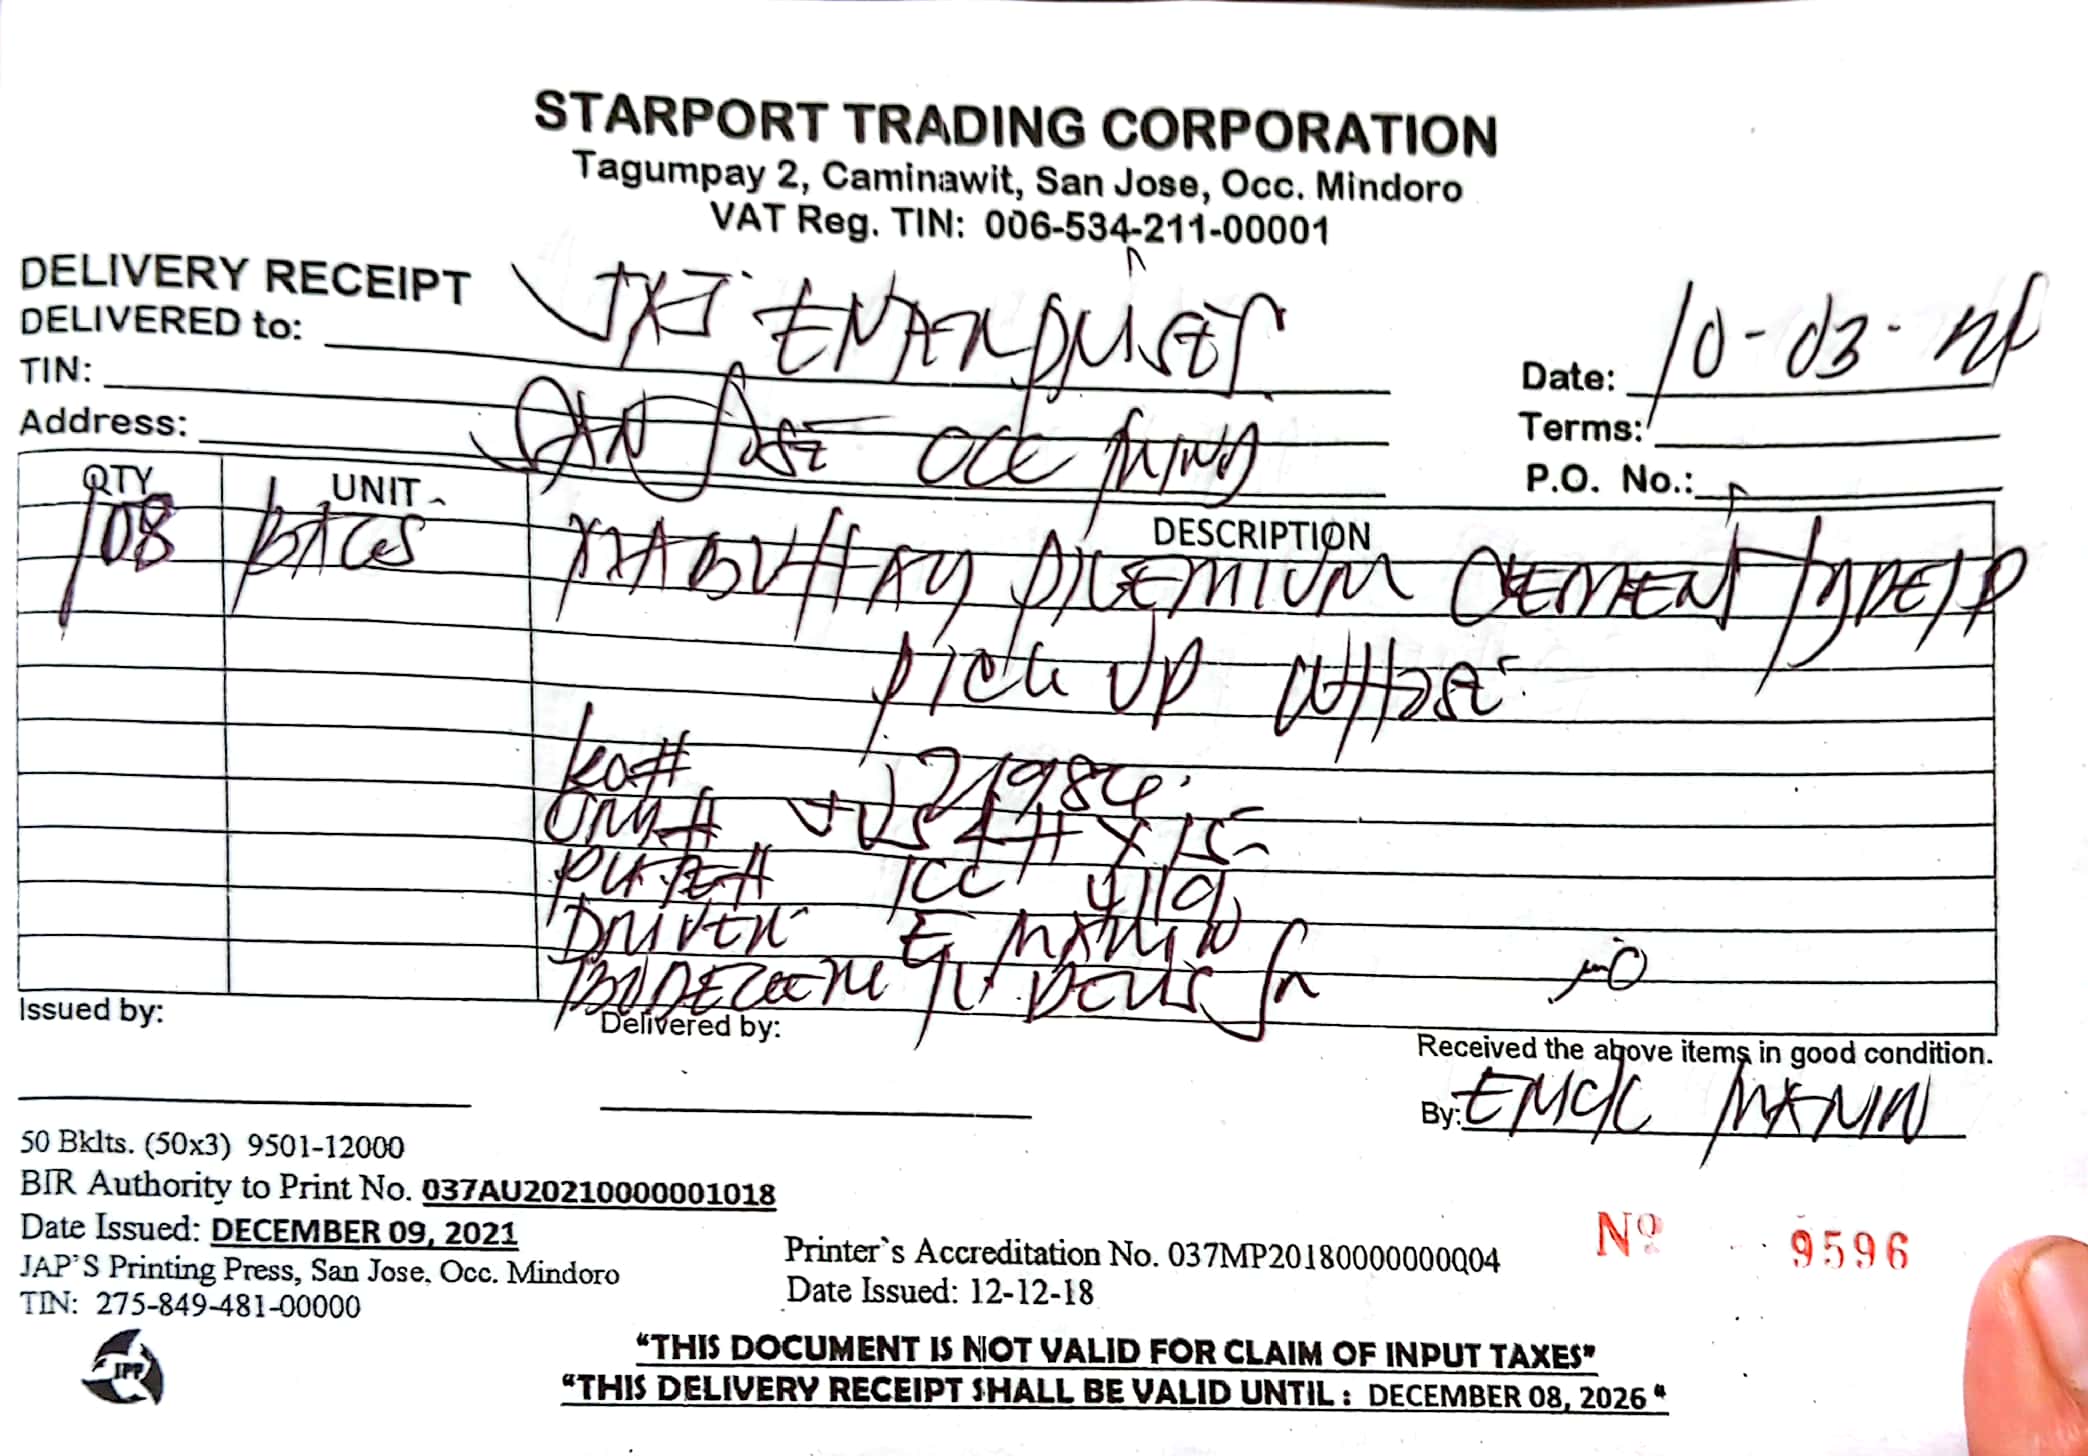 STARPORT TRADING CORPORATION
Tagumpay 2, Caminawit, San Jose, Occ. Mindoro
VAT Reg. TIN: 006-534-211-00001
DELIVERY RECEIPT
DELIVERED to: JXJ
TIN:
Address: SAN JOSE OCC MIND
Date: 10-03-24
Terms:
P.O. No.:
QTY UNIT DESCRIPTION
108 BAGS MABUHAY PREMIUM CEMENT TYPE 1P
PICK UP WHSE
#
#
PLATE#
DRIVER E
BODEGERO JR
Issued by:
Delivered by:
Received the above items in good condition.
By:
50 Bklts. (50x3) 9501-12000
BIR Authority to Print No. 037AU20210000001018
Date Issued: DECEMBER 09, 2021
JAP'S Printing Press, San Jose, Occ. Mindoro
TIN: 275-849-481-00000
Printer`s Accreditation No. 037MP20180000000004
Date Issued: 12-12-18
Nº 9596
JPP
"THIS DOCUMENT IS NOT VALID FOR CLAIM OF INPUT TAXES"
"THIS DELIVERY RECEIPT SHALL BE VALID UNTIL : DECEMBER 08, 2026"